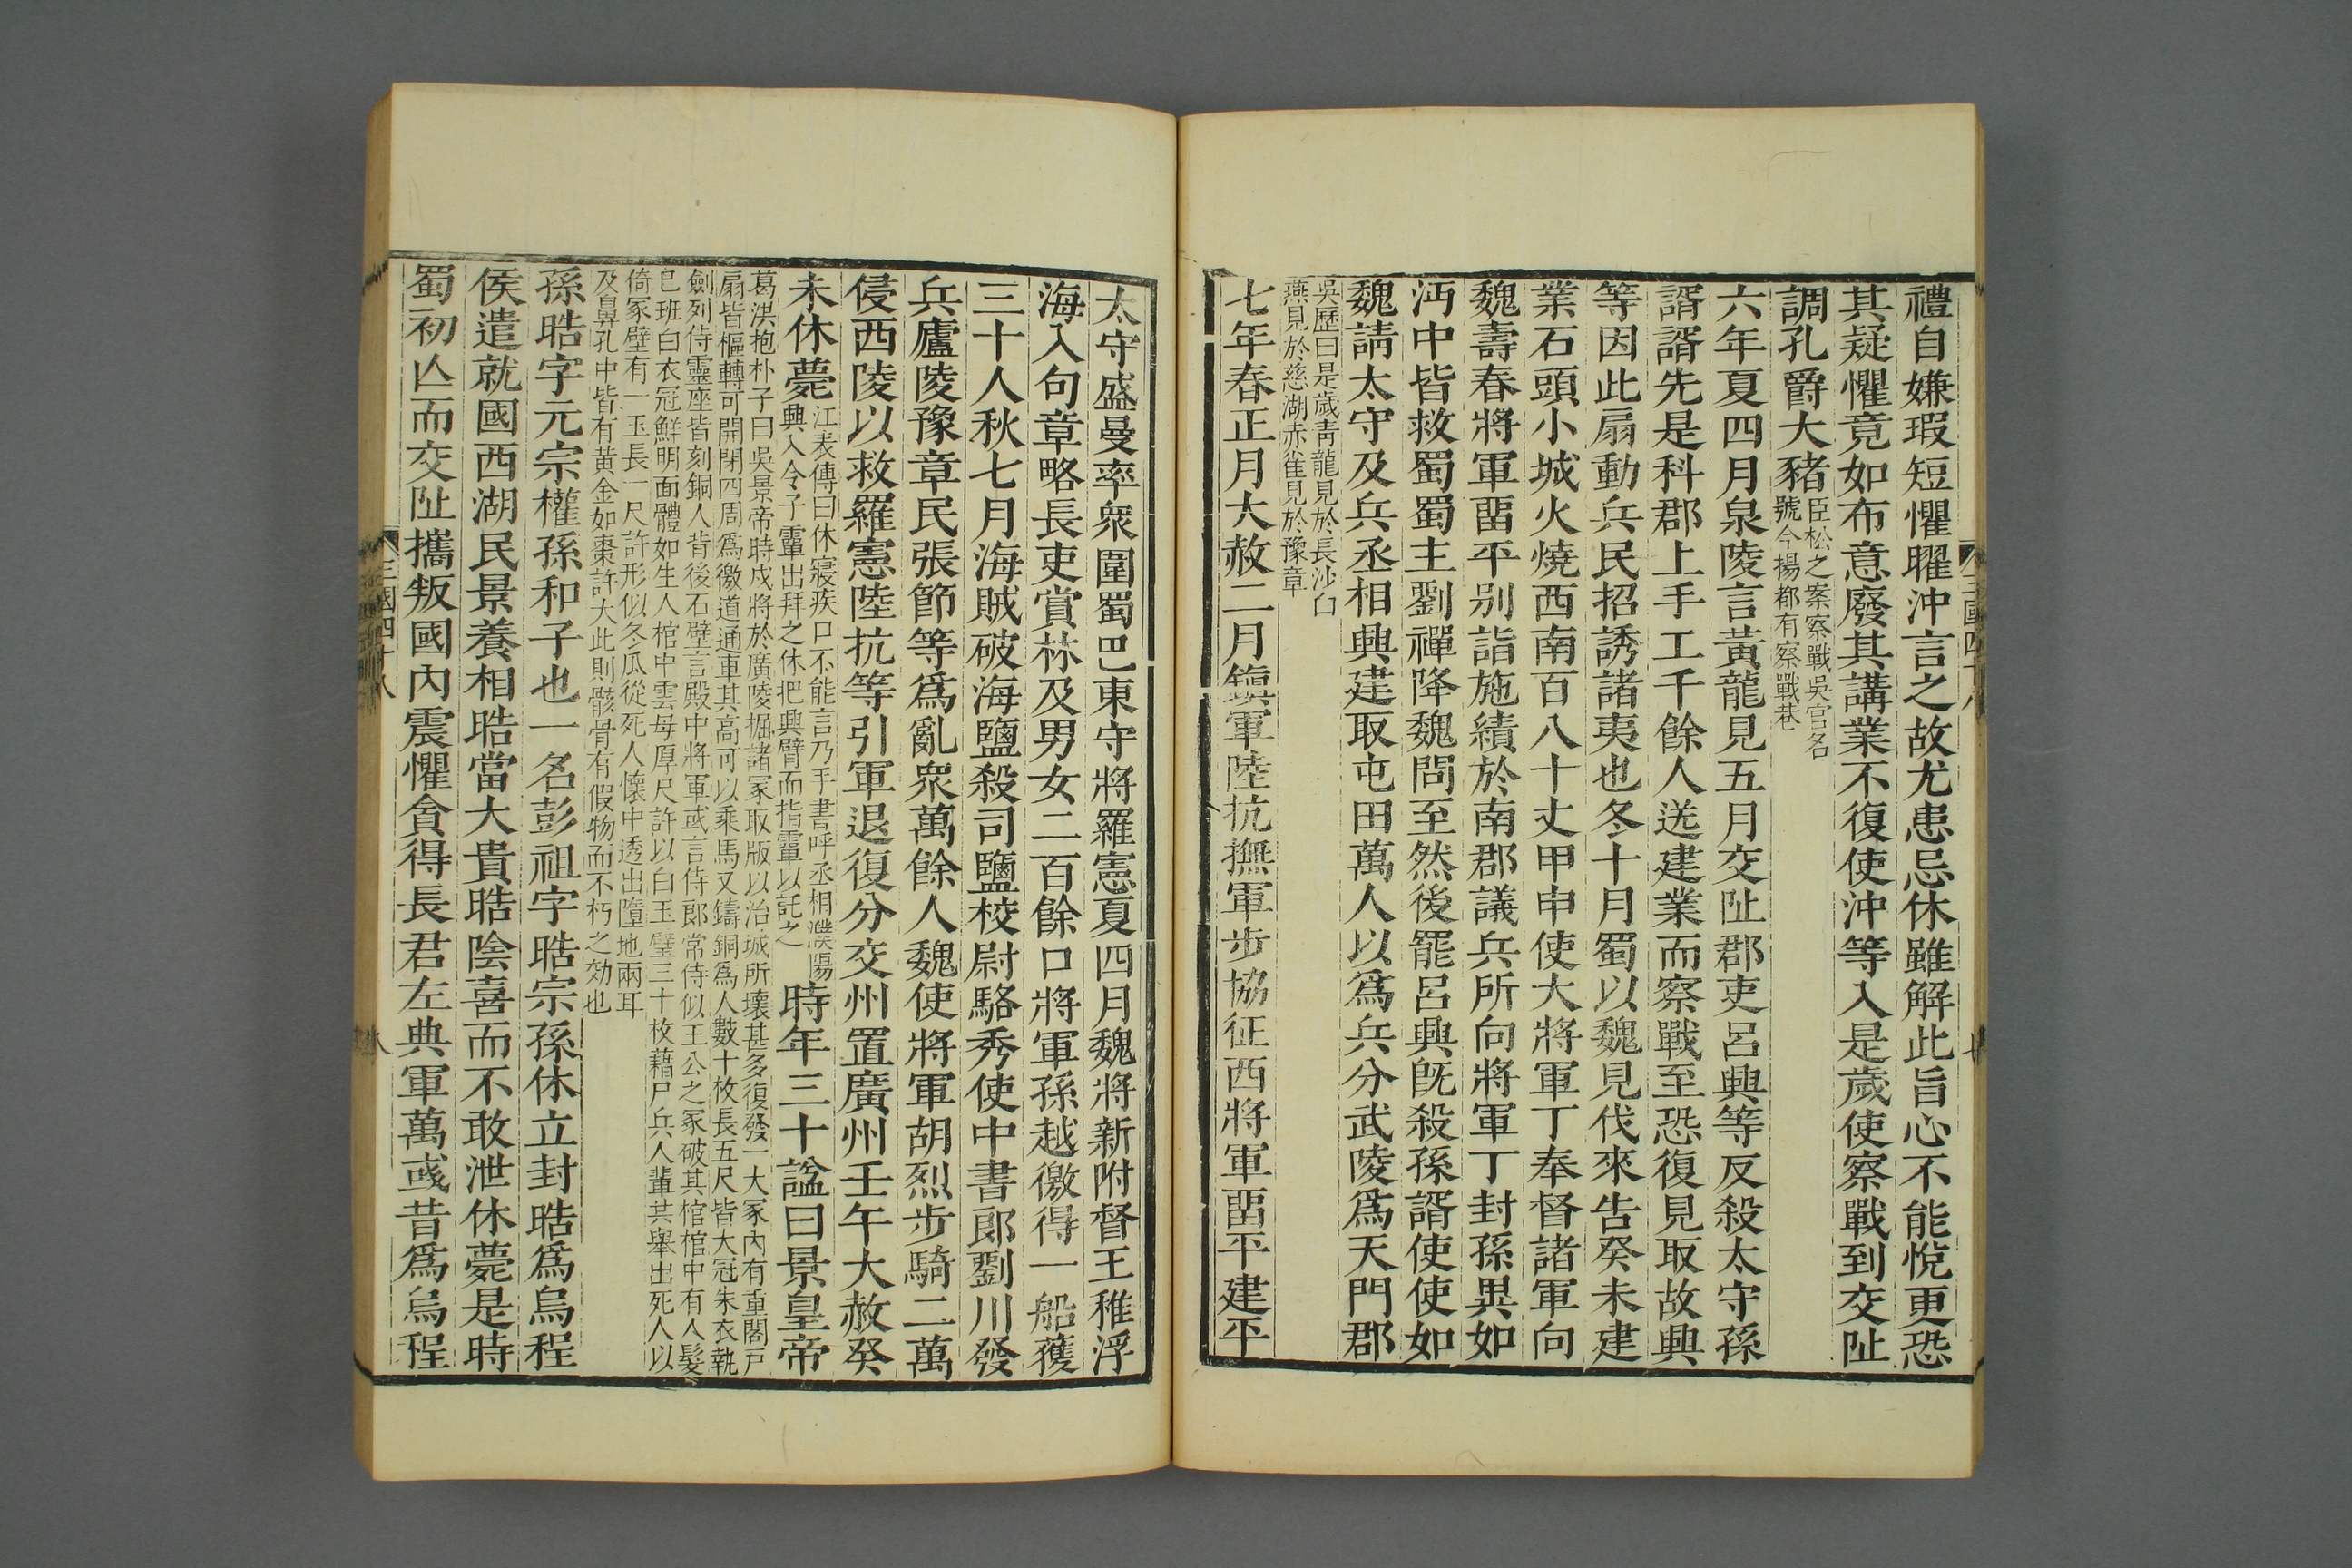 禮自嫌瑕短懼曜沖言之故尤患忌休雖解此旨心不能悅更恐
其疑懼竟如布意廢其講業不復使沖等入是歲使察戰到交阯
調孔爵大豬
臣松之案察戰吳官名
號今揚都有察戰巷
六年夏四月泉陵言黃龍見五月交阯郡吏呂興等反殺太守孫
諝諝先是科郡上手工千餘人送建業而察戰至恐復見取故興
等因此扇動兵民招誘諸夷也冬十月蜀以魏見伐來告癸未建
業石頭小城火燒西南百八十丈甲申使大將軍丁奉督諸軍向
魏壽春將軍畱平別詣施績於南郡議兵所向將軍丁封孫異如
沔中皆救蜀蜀主劉禪降魏問至然後罷呂興旣殺孫諝使使如
魏請太守及兵丞相興建取屯田萬人以爲兵分武陵爲天門郡
吳歷曰是歲靑龍見於長沙白
燕見於慈湖赤雀見於豫章
七年春正月大赦二月鎭軍陸抗撫軍步協征西將軍畱平建平
太守盛曼率衆圍蜀巴東守將羅憲夏四月魏將新附督王稚浮
海入句章略長吏賞林及男女二百餘口將軍孫越徼得一船獲
三十人秋七月海賊破海鹽殺司鹽校尉駱秀使中書郞劉川發
兵廬陵豫章民張節等爲亂衆萬餘人魏使將軍胡烈步騎二萬
侵西陵以救羅憲陸抗等引軍退復分交州置廣州壬午大赦癸
未休薨
江表傳曰休寢疾口不能言乃手書呼丞相濮陽
興入令子𩅦出拜之休把興臂而指𩅦以託之
時年三十諡曰景皇帝
葛洪抱朴子曰吳景帝時戍將於廣陵掘諸冢取版以治城所壞甚多復發一大冢內有重閣戶
扇皆樞轉可開閉四周爲徼道通車其高可以乘馬又鑄銅爲人數十枚長五尺皆大冠朱衣執
劍列侍靈座皆刻銅人背後石壁言殿中將軍或言侍郞常侍似王公之冢破其棺棺中有人髮
已班白衣冠鮮明面體如生人棺中雲母厚尺許以白玉璧三十枚藉尸兵人輩共舉出死人以
倚冢壁有一玉長一尺許形似冬瓜從死人懷中透出墮地兩耳
及鼻孔中皆有黃金如棗許大此則骸骨有假物而不朽之効也
孫晧字元宗權孫和子也一名彭祖字晧宗孫休立封晧爲烏程
侯遣就國西湖民景養相晧當大貴晧陰喜而不敢泄休薨是時
蜀初亾而交阯攜叛國內震懼貪得長君左典軍萬彧昔爲烏程
三國四十八